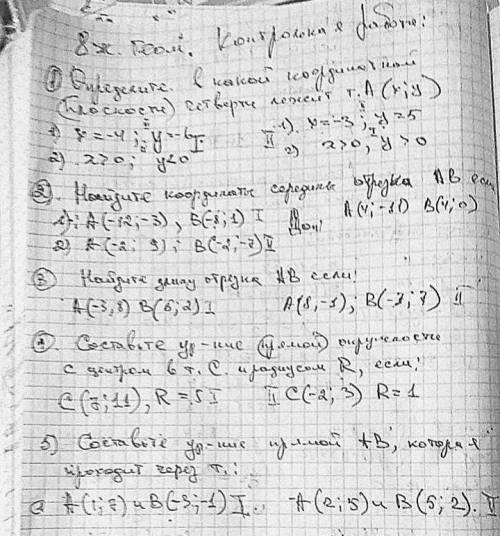 8ж. Геом. Контрольная работа:
① Определите в какой координатной
(плоскости) четверти лежит т. A (x; y)
1) x = -4; y = -6 I II 1). x = -3; y = 5
2) x > 0; y < 0 2) x > 0; y > 0
② Найдите координаты середины отрезка AB если
1): A(-12; -3), B(-8; 1) I Доп: A(4; -11) B(4; 0)
2) A(-2; 9); B(-2; -7) II
③ Найдите длину отрезка AB если:
A(-3, 8) B(6; 2) I A(8, -1); B(-3; 7) II
④. Составьте ур-ние (прямой) окружности
с центром в т. C. и радиусом R, если:
C(7; 11), R = 5 I II C(-2; 3) R = 1
5) Составьте ур-ние прямой AB, которая
проходит через т.:
A(1; 7) и B(-3; -1) I. A(2; 5) и B(5; 2). II